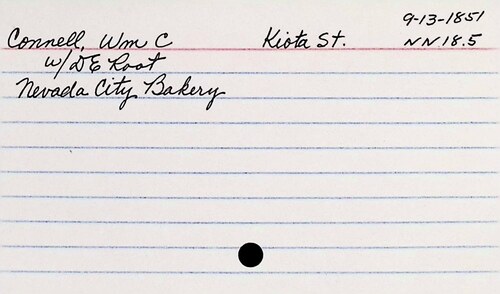 9-13-1851
Connell, Wm C Kiota St. NN 18.5
w/DE Root
Nevada City Bakery